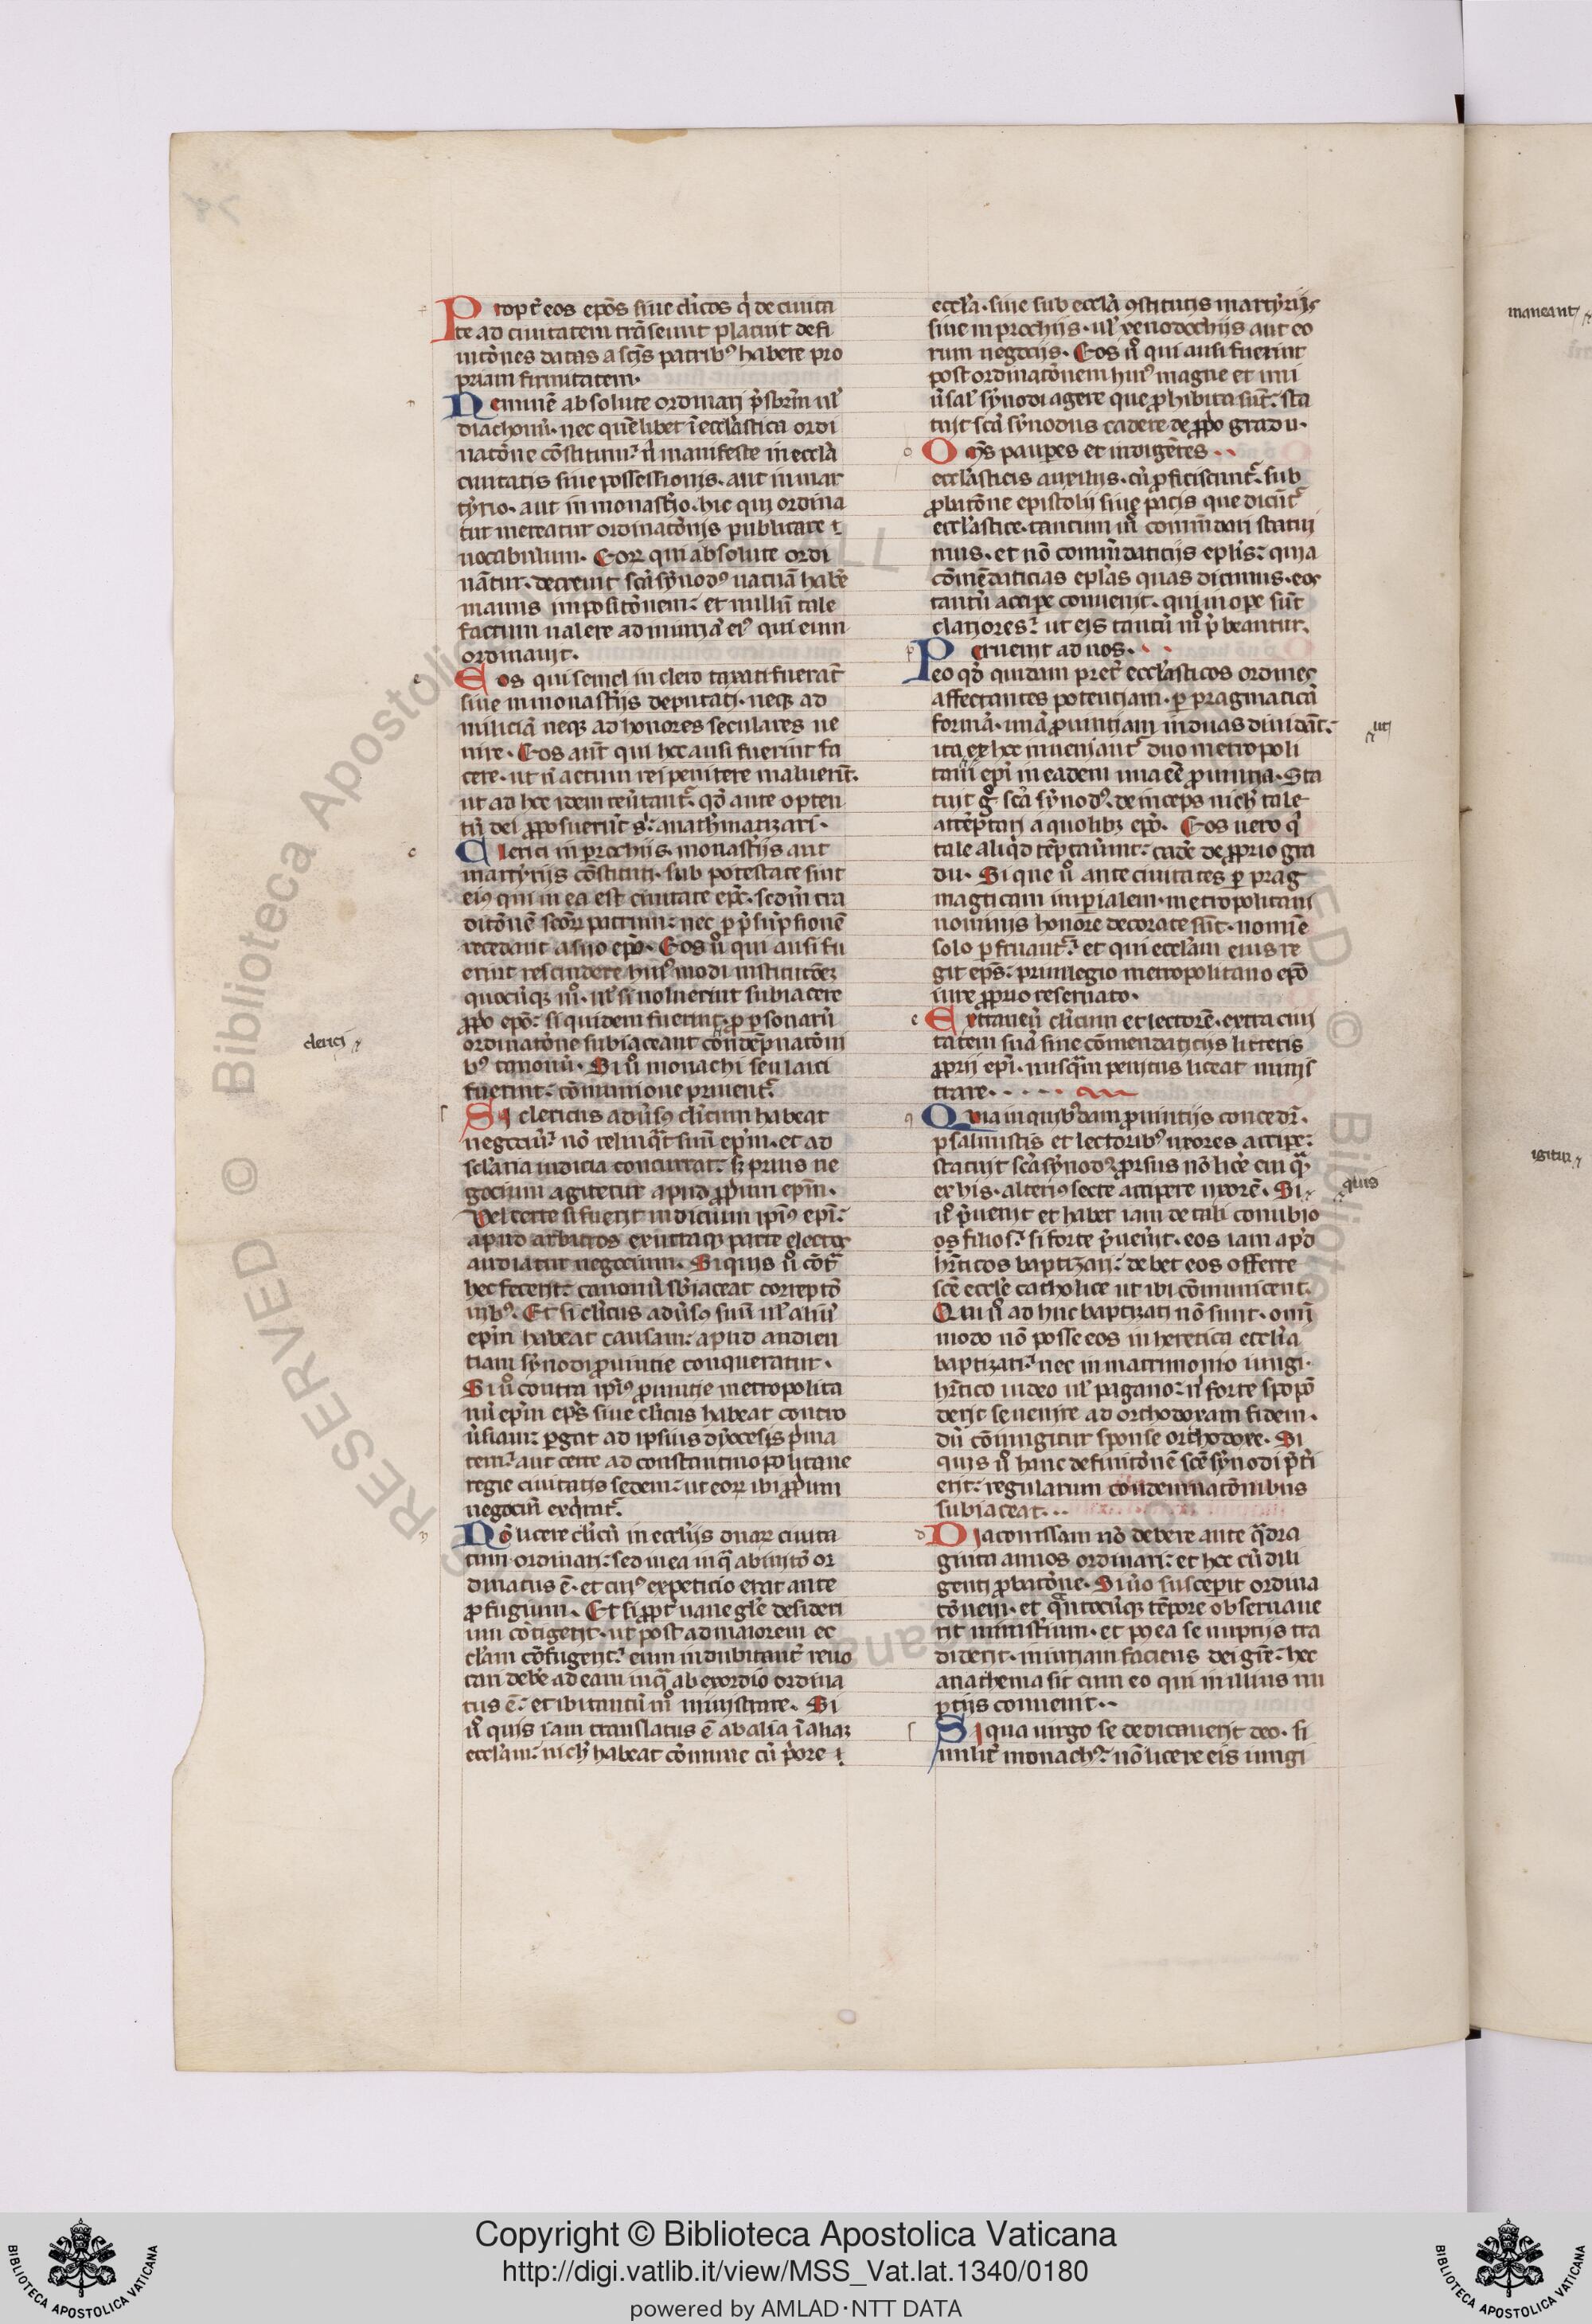 Propt̄ eos ep̄os siue cl̄icos q̇ de ciuita
te ad ciuitatem trāseunt placuit defi
nitōnes datas a sc̄is patribꝰ habere pro
priam firmitatem.
Neminē absolute ordinari p̄sbr̄m ul̄
diachonū. nec quēlibet ī eccl̄astica ordi
natōne cōstitutū: n̄ manifeste in eccl̄a
ciuitatis siue possessionis. aut in mar
tyrio. aut in monast̄io. hic qui ordina
tur mereatur ordinatōnis publicate ⁊
uocabulum. Eoꝝ qui absolute ordi
nātur. decreuit sc̄a synodꝰ uacuā habē
manus impositōnem: et nullū tale
factum ualere ad iniuriā eiꝰ qui eum
ordinauit.
Eos qui semel in clero taxati fuerāt
siue in monast̄iis deputati. neqꝫ ad
miliciā neqꝫ ad honores seculares ue
nire. Eos aut̄ qui hec ausi fuerint fa
cere. ut n̄ actum rei penitere maluerīt.
ut ad hec idem reūtant᷑. qd̄ ante opten
tū dei ꝓposuerūt ⁊c̄: anath̄matizari.
Clerici in parochiis. monast̄iis aut
martyriis cōstituti. sub potestate sint
eiꝰ qui in ea est ciuitate ep̄c. sedm̄ tra
ditōnē sc̄oꝝ patrum: nec ꝑ p̄sūpsionē
recedant a suo ep̄o. Eos ū qui ausi fu
erint rescindere huiꝰmodi institutōeꝫ
quocūqꝫ mͦ. ul̄ si noluerint subiacere
ꝓpo ep̄o: si quidem fuerint ꝓ ꝑsonarū
ordinatōne subiaceant condēpnatōni
bꝰ canonū. Si ū monachi seu laici
fuerint: cōmunione priuent᷑.
clerici
Si clericus adūsꝰ cl̄icum habeat
negociū: nō relinq̄at suū ep̄m. et ad
scl̄aria iudicia concurrat: sꝫ prius ne
gocium agitetur apud ꝓprium ep̄m.
Vel certe si fuerit iudicium ip̄iꝰ ep̄i:
apud arbitros ex utraqꝫ parte electos
audiatur negocium. Si quis ū cōt̄
hec fecerit: canonū sb̄iaceat correptō
nibꝰ. Et si cl̄icus adūsꝰ suū ul̄ aliū
ep̄m habeat causam: apud audien
tiam synodi ꝓuintie conqueratur.
Si ū contra ip̄iꝰ ꝓuincie metropolita
nū ep̄m ep̄s siue cl̄icus habeat contro
ūsiam: ꝑgat ad ipsius dyocesis p̄ma
tem: aut certe ad constantinopolitane
regie ciuitatis sedem: ut eoꝝ ibi ꝓprium
negociū exq̇rat᷑.
Nō licere cl̄icū in eccl̄iis duaꝝ ciuita
tum ordinari: sed in ea in q̄ ab initō or
dinatus ē. et cuiꝰ expeticio erat ante
ꝓfugium. Et si ꝓpt̄ uane gl̄e desideri
um cōtigerit. ut post ad maiorem ec
cl̄am cōfugerit: eum indubitant̄ reuo
cari debē ad eam in q̄ ab exordio ordina
tus ē: et ibi tantū mͦ ministrare. Si
ū quis iam translatus ē ab alia ī aliaꝫ
eccl̄am: nich̄ habeat cōmune cū p̄ore ⁊
eccl̄a. siue sub eccl̄a ꝯstitutis martyriis
siue in ꝑochiis. ul̄ xenodochiis aut eo
rum negociis. Eos ū qui ausi fuerint
post ordinatōnem huiꝰ magne et uni
ūsal̄ synodi agere que ꝓhibita sūt: sta
tuit sc̄a synodus cadere de ꝓpo gradu.
Om̄s paupes et indigētes
eccl̄asticis auxiliis. cū ꝓficiscunt᷑. sub
ꝓbatōne epistolii siue pacis que dicūt᷑
eccl̄astice. tantum m̄ commēdari statui
mus. et nō commēdaticiis epl̄is: quia
cōmēdaticias epl̄as quas dicimus. eos
tantū accipe conuenit. qui in ope sūt
clariores: ut eis tantū mͦ p̄beantur.
Peruenit ad nos.
eo qd̄ quidam pret̄ eccl̄asticos ordines
affectantes potentiam. ꝑ pragmaticā
formā. unā ꝓuintiam in duas diuidāt.
ita ex hec inueniant᷑ duo metropoli
uti
tani ep̄i in eadem una eē ꝓuintia. Sta
tuit gͦ sc̄a synodꝰ. deinceps nich̄ tale
attēptari a quolibꝫ ep̄o. Eos uero q̇
tale aliq̇d tēptaūint: cadē de ꝓprio gra
du. Si que ū ante ciuitates ꝑ prag
magticam inperialem. metropolitani
nominis honore decorate sūt. nomīe
solo ꝑfruant᷑: et qui eccl̄am eius re
git ep̄s: priuilegio metropolitano ep̄o
iure ꝓprio reseruato.
Extraneū cl̄icum et lectorē. extra ciui
tatem suā sine cōmendaticiis litteris
ꝓprii ep̄i. nusq̄m penitus liceat minis
trare.
Quia in quibꝰdam ꝓuintiis conceds̄.
psalmistis et lectoribꝰ uxores accipe:
statuit sc̄a synodꝰ prorsus nō licē cui q̄
ex his. alteriꝰ secte accipere uxorē. Si
quis
ū p̄uenit et habet iam de tali conubio
os filios: si forte p̄uenit. eos iam ap̄d
hr̄ticos baptizari: debet eos offerre
sc̄e eccl̄e catholice ut ibi cōmunicent.
Qui ū ad huc baptizati nō sunt. omī
modo nō posse eos in heretica eccl̄ia
baptizari: nec in matrimonio iungi.
hr̄tico iudeo ul̄ pagano: n̄ forte spopō
derit se uenire ad orthodoxam fidem.
dū cōiungitur sponse orthodoxe. Si
quis ū hanc definitōnē sc̄e synodi p̄t̄i
erit: regularum condempnatōnibus
subiaceat.
Diaconissam nō debere ante q̄dra
ginta annos ordinari: et hec cū dili
genti ꝓbatōne. Si ūo suscepit ordina
tōnem. et q̄ntocūqꝫ tēpore obseruaue
rit minist̄ium. et postea se nuptiis tra
diderit. iniuriam faciens dei gr̄e: hec
anathema sit cum eo qui in illius nu
ptiis conuenit.
Si qua uirgo se dedicauerit deo. si
milit̄ monachꝰ: nō licere eis iungi
maneant
igitur
Copyright © Biblioteca Apostolica Vaticana
http://digi.vatlib.it/view/MSS_Vat.lat.1340/0180
powered by AMLAD·NTT DATA
BIBLIOTECA APOSTOLICA VATICANA
BIBLIOTECA APOSTOLICA VATICANA